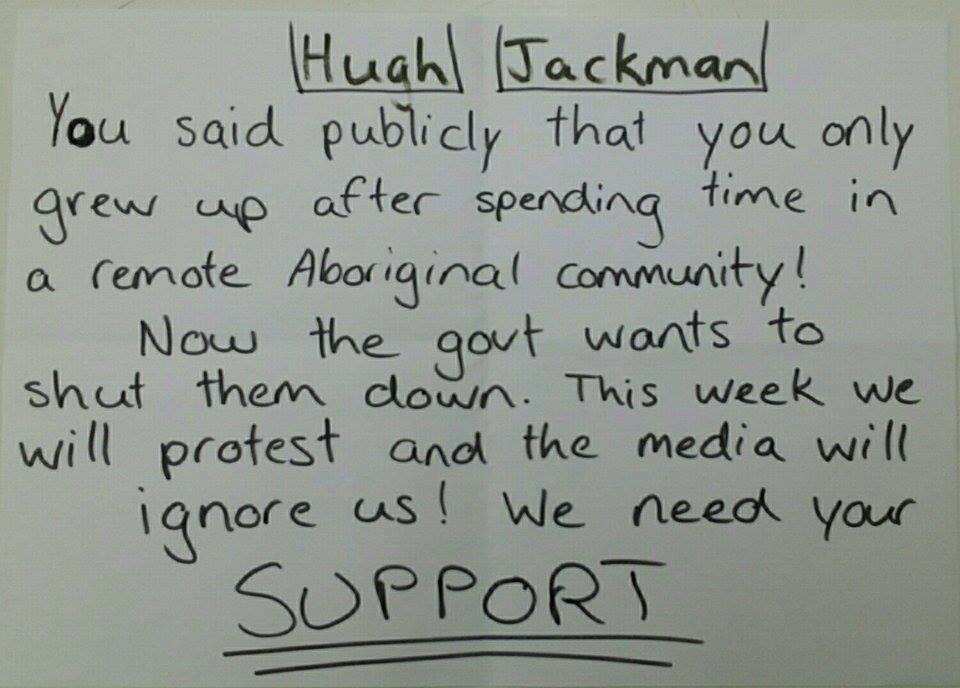 Hugh Jackman
You said publicly that you only
grew up after spending time in
a remote Aboriginal community!
Now the govt wants to
shut them down. This week we
will protest and the media will
ignore us! We need your
SUPPORT